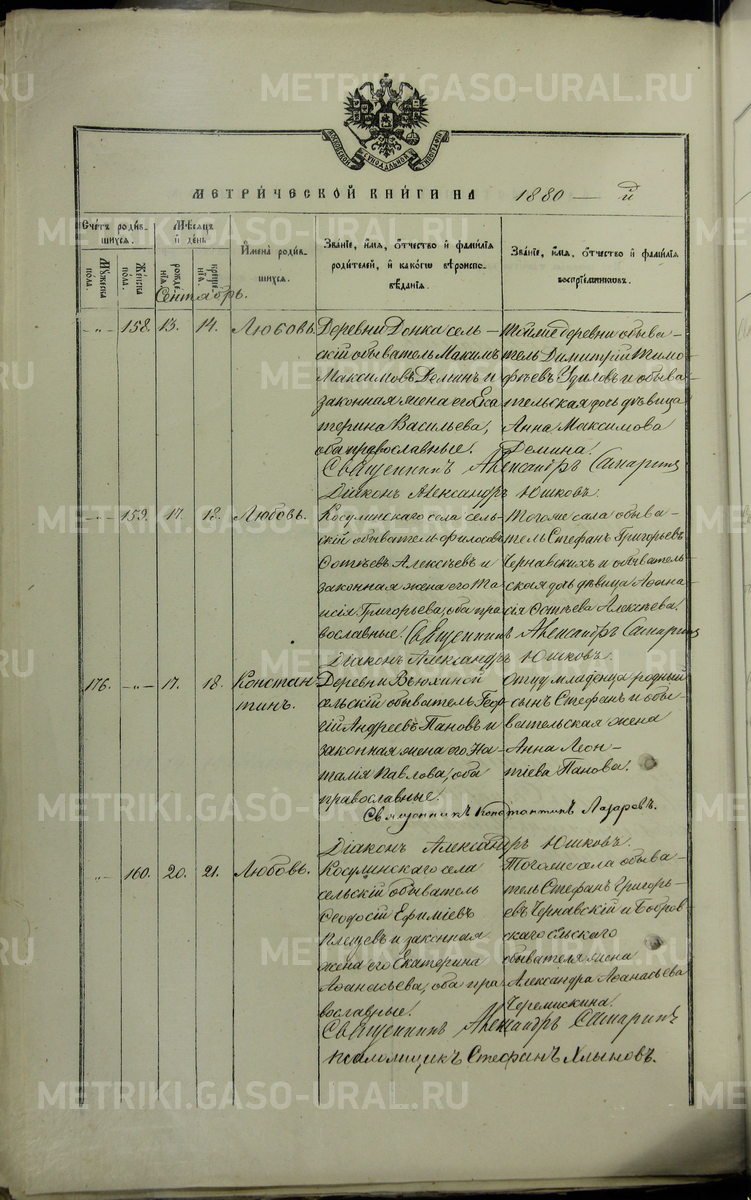 МЕТРИ́ЧЕСКОЙ КНИ́ГИ НА 1880 — й
Счётъ роди́вшихся.
Мѣ́сяцъ и́ день
И́мена̀ роди́вшихся.
Зва́ніе, и́мя, ѻ́тчество и́ фами́лія роди́телей, и́ како́гѡ вѣроисповѣ́данія.
Зва́ніе, и́мя, ѻ́тчество и́ фами́лія воспрїе́мниковъ.
Му́жеска по́ла.
Же́нска по́ла.
рожде́нія.
креще́нія.
Сентябрь.
-„- 158. 13. 14. Любовь.
Деревни Донка сель-
скій обыватель Максимъ
Максимовъ Деминъ и
законная жена его Ека
терина Васильева,
оба православные.
Той же деревни обыва-
тель Димитрій Тимо
фѣевъ Удиловъ и обыва
тельская дочь дѣвица
Анна Максимова
Демина.
Священникъ Александръ Сапаринъ
Діаконъ Александръ Юшковъ.
-„- 159. 17. 18. Любовь.
Косулинскаго села сель-
скій обыватель
Фотіевъ Алексѣевъ и
законная жена его Та
исія Григорьева, оба пра
вославные.
Того же села обыва-
тель Стефанъ Григорьевъ
Чернавскихъ и обыватель
ская дочь дѣвица Аѳана
сія Фотіева Алексѣева.
Священникъ Александръ Сапаринъ
Діаконъ Александръ Юшковъ.
176. -„- 17. 18. Констан
тинъ.
Деревни Вьюхиной
сельскій обыватель Геор
гій Андреевъ Пановъ и
законная жена его На
талія Павлова, оба
православные.
Отцу младенца родный
сынъ Стефанъ и обы
вательская жена
Анна Леон-
тіева Панова.
Священникъ Константинъ Лазаревъ.
Діаконъ Александръ Юшковъ.
-„- 160. 20. 21. Любовь.
Косулинскаго села
сельскій обыватель
Ѳеодосій Ефиміевъ
Клещевъ и законная
жена его Екатерина
Аѳанасьева, оба пра
вославные.
Того же села обыва-
тель Стефанъ Григорь-
евъ Чернавскій и Бобров
скаго сельскаго
обывателя жена
Александра Аѳанасьева
Черемискина.
Священникъ Александръ Сапаринъ
Псаломщикъ Стефанъ Хлыновъ.
METRIKI.GASO-URAL.RU